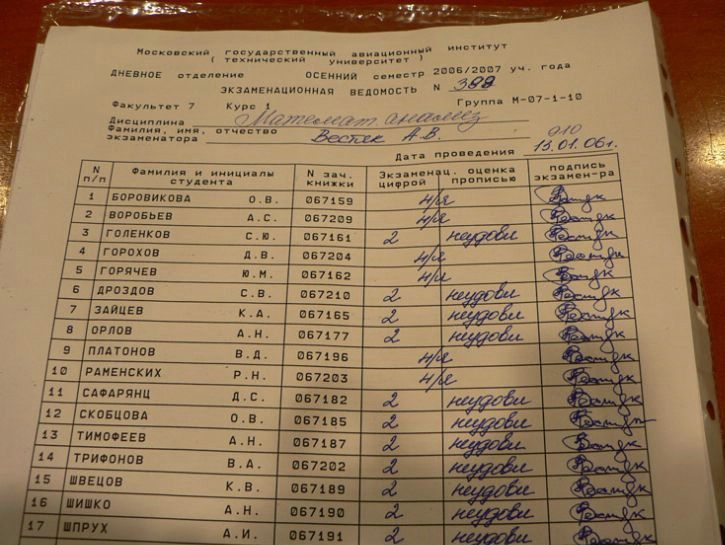 Московский государственный авиационный институт
( технический университет )
ДНЕВНОЕ отделение ОСЕННИЙ семестр 2006/2007 уч. года
ЭКЗАМЕНАЦИОННАЯ ВЕДОМОСТЬ N 399
Факультет 7 Курс 1 Группа М-07-1-10
Дисциплина Математ. анализ
Фамилия, имя, отчество
экзаменатора Вестяк А.В.
Дата проведения 13.01.06г.
N п/п Фамилия и инициалы студента N зач. книжки Экзаменац. оценка цифрой прописью подпись экзамен-ра
1 БОРОВИКОВА О.В. 067159 н/я
2 ВОРОБЬЕВ А.С. 067209 н/я
3 ГОЛЕНКОВ С.Ю. 067161 2 неудовл
4 ГОРОХОВ Д.В. 067204 н/я
5 ГОРЯЧЕВ Ю.М. 067162 н/я
6 ДРОЗДОВ С.В. 067210 2 неудовл
7 ЗАЙЦЕВ К.А. 067165 2 неудовл
8 ОРЛОВ А.Н. 067177 2 неудовл
9 ПЛАТОНОВ В.Д. 067196 н/я
10 РАМЕНСКИХ Р.Н. 067203 н/я
11 САФАРЯНЦ Д.С. 067182 2 неудовл
12 СКОБЦОВА О.В. 067185 2 неудовл
13 ТИМОФЕЕВ А.Н. 067187 2 неудовл
14 ТРИФОНОВ В.А. 067202 2 неудовл
15 ШВЕЦОВ К.В. 067189 2 неудовл
16 ШИШКО А.Н. 067190 2 неудовл
17 ШПРУХ А.И. 067191 2 неудовл